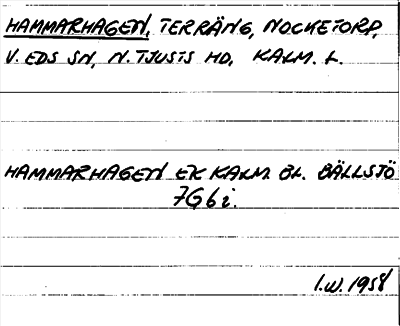 HAMMARHAGEN, TERRÄNG, NOCKETORP,
V. EDS SN, N. TJUSTS HD, KALM. L.
HAMMARHAGEN EK KALM. BL. BÄLLSJÖ
7G6i.
I.W. 1958